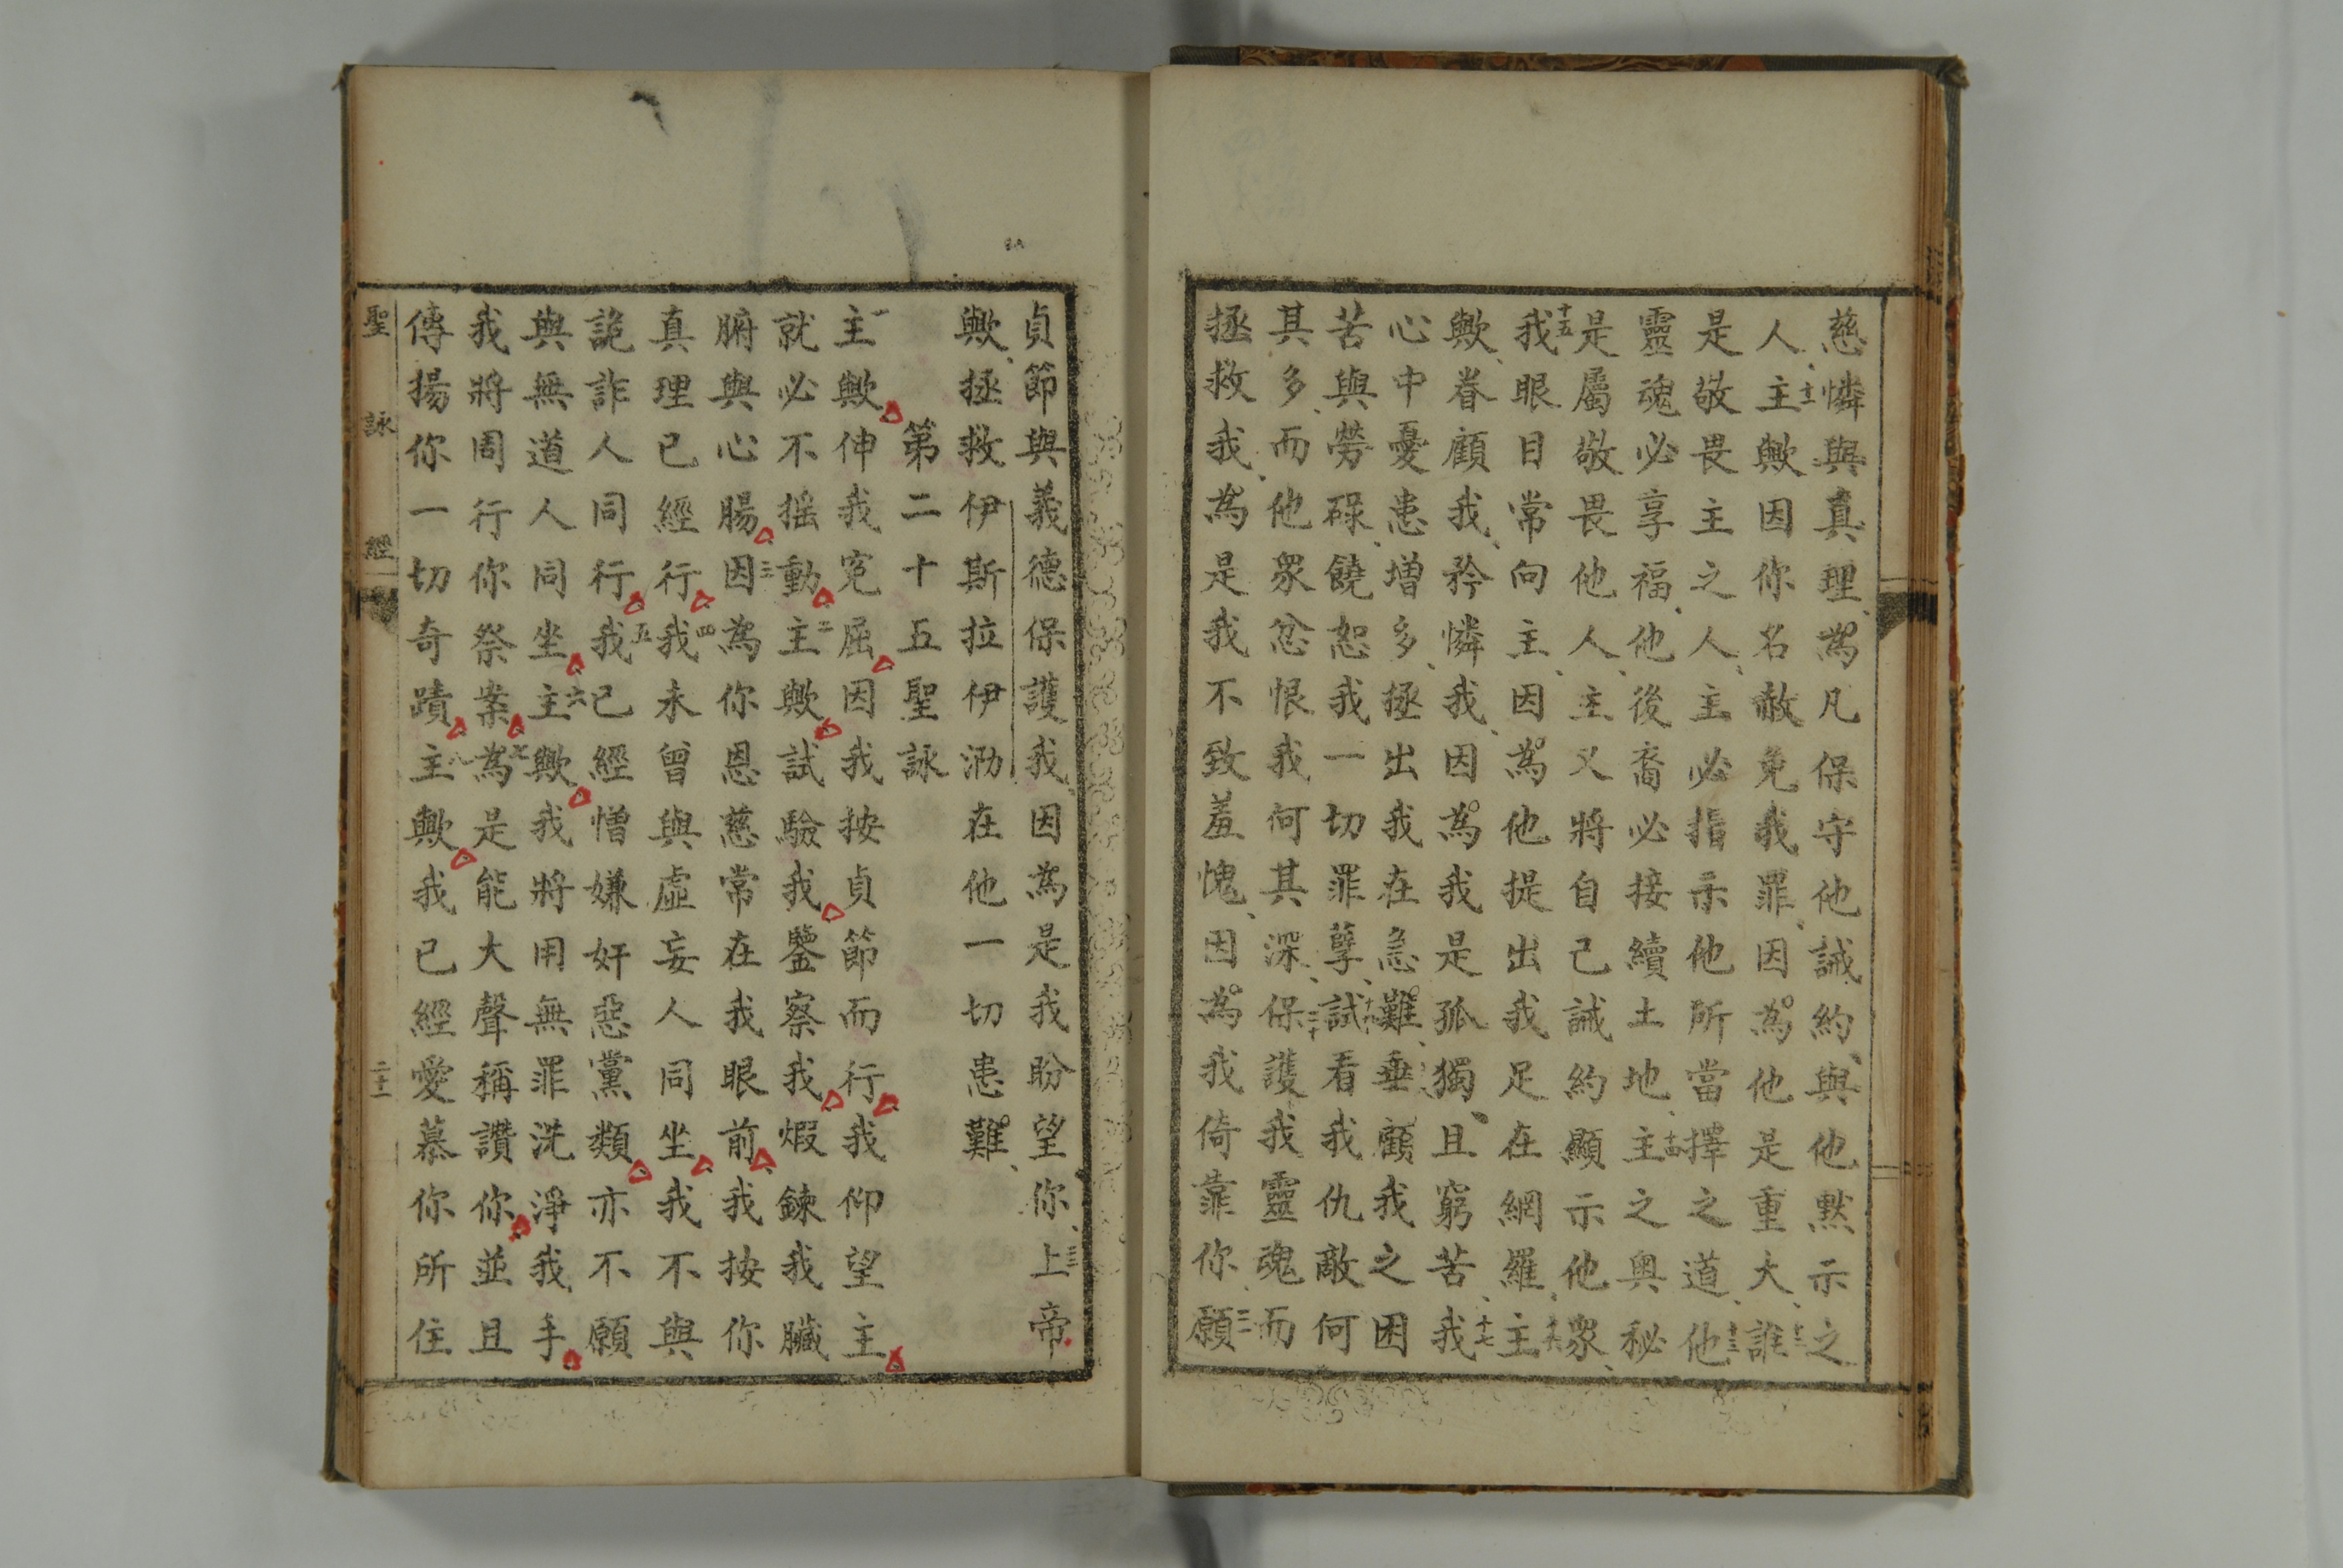 慈憐與真理、為凡保守他誡約、與他默示之
人、十一主歟因你名赦免我罪、因為他是重大、十二誰
是敬畏主之人、主必指示他所當擇之道、十三他
靈魂必享福、他後裔必接續土地、十四主之奧秘
是屬敬畏他人、主又將自己誡約顯示他眾、
十五我眼目常向主、因為他提出我足在網羅、十六主
歟、眷顧我、矜憐我、因為我是孤獨、且窮苦、十七我
心中憂患增多、拯出我在急難、十八垂顧我之困
苦與勞碌、饒恕我一切罪孽、十九試看我仇敵何
其多、而他眾忿恨我何其深、二十保護我靈魂而
拯救我、為是我不致羞愧、因為我倚靠你、二一願
貞節與義德保護我、因為是我盼望你、二二上帝
歟、拯救伊斯拉伊泐在他一切患難、
第二十五聖詠
一主歟伸我冤屈因我按貞節而行我仰望主
就必不搖動二主歟試驗我鑒察我煆鍊我臟
腑與心腸三因為你恩慈常在我眼前我按你
真理已經行四我未曾與虛妄人同坐我不與
詭詐人同行五我已經憎嫌奸惡黨類亦不願
與無道人同坐六主歟我將用無罪洗淨我手
我將周行你祭案七為是能大聲稱讚你並且
傳揚你一切奇蹟八主歟我已經愛慕你所住
聖詠經
二十二